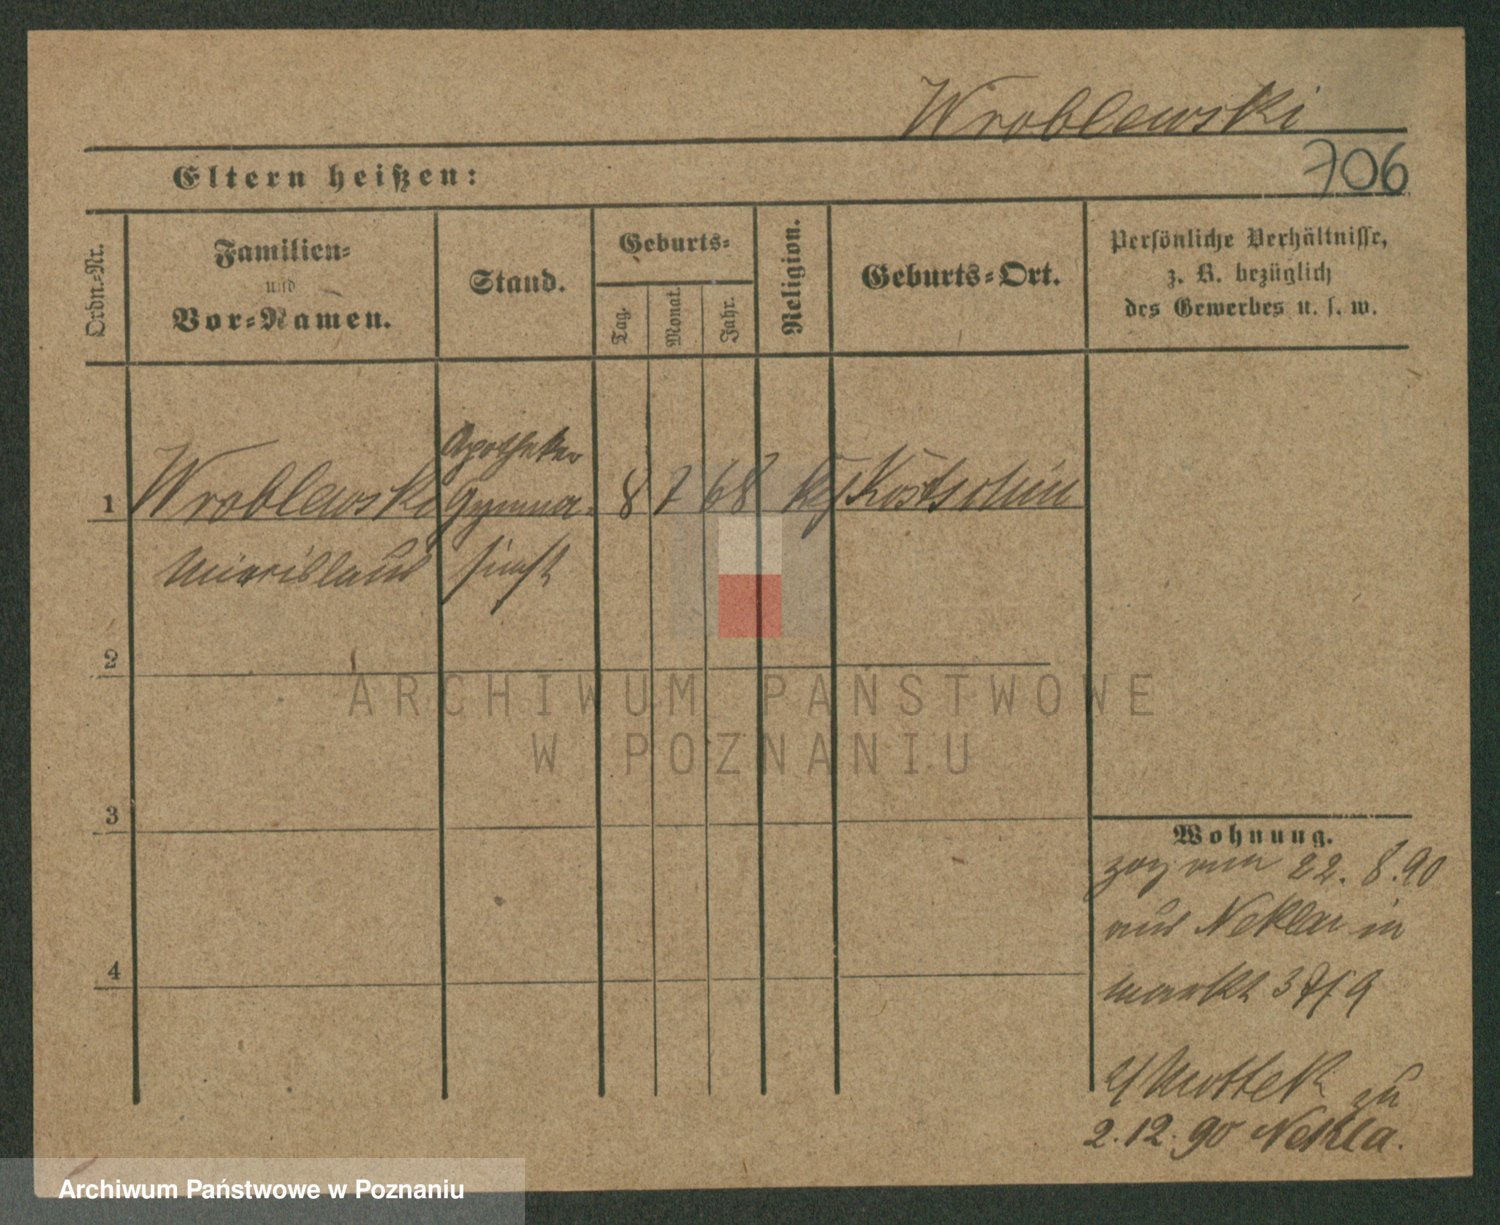 Wroblewski
706
Eltern heißen:
Ordn.-Nr.
Familien-
und
Vor-Namen.
Stand.
Geburts-
Tag.
Monat.
Jahr.
Religion.
Geburts-Ort.
Persönliche Verhältnisse,
z. B. bezüglich
des Gewerbes u. s. w.
Apotheker
1 Wroblewski Gymna- 8 7 68 Kostschin
Miecislaus
2
ARCHIWUM PAŃSTWOWE
W POZNANIU
3
Wohnung.
zog am 22. 8. 90
aus Nekla in
4
Markt
Mottek zu
2. 12. 90 Nekla.
Archiwum Państwowe w Poznaniu